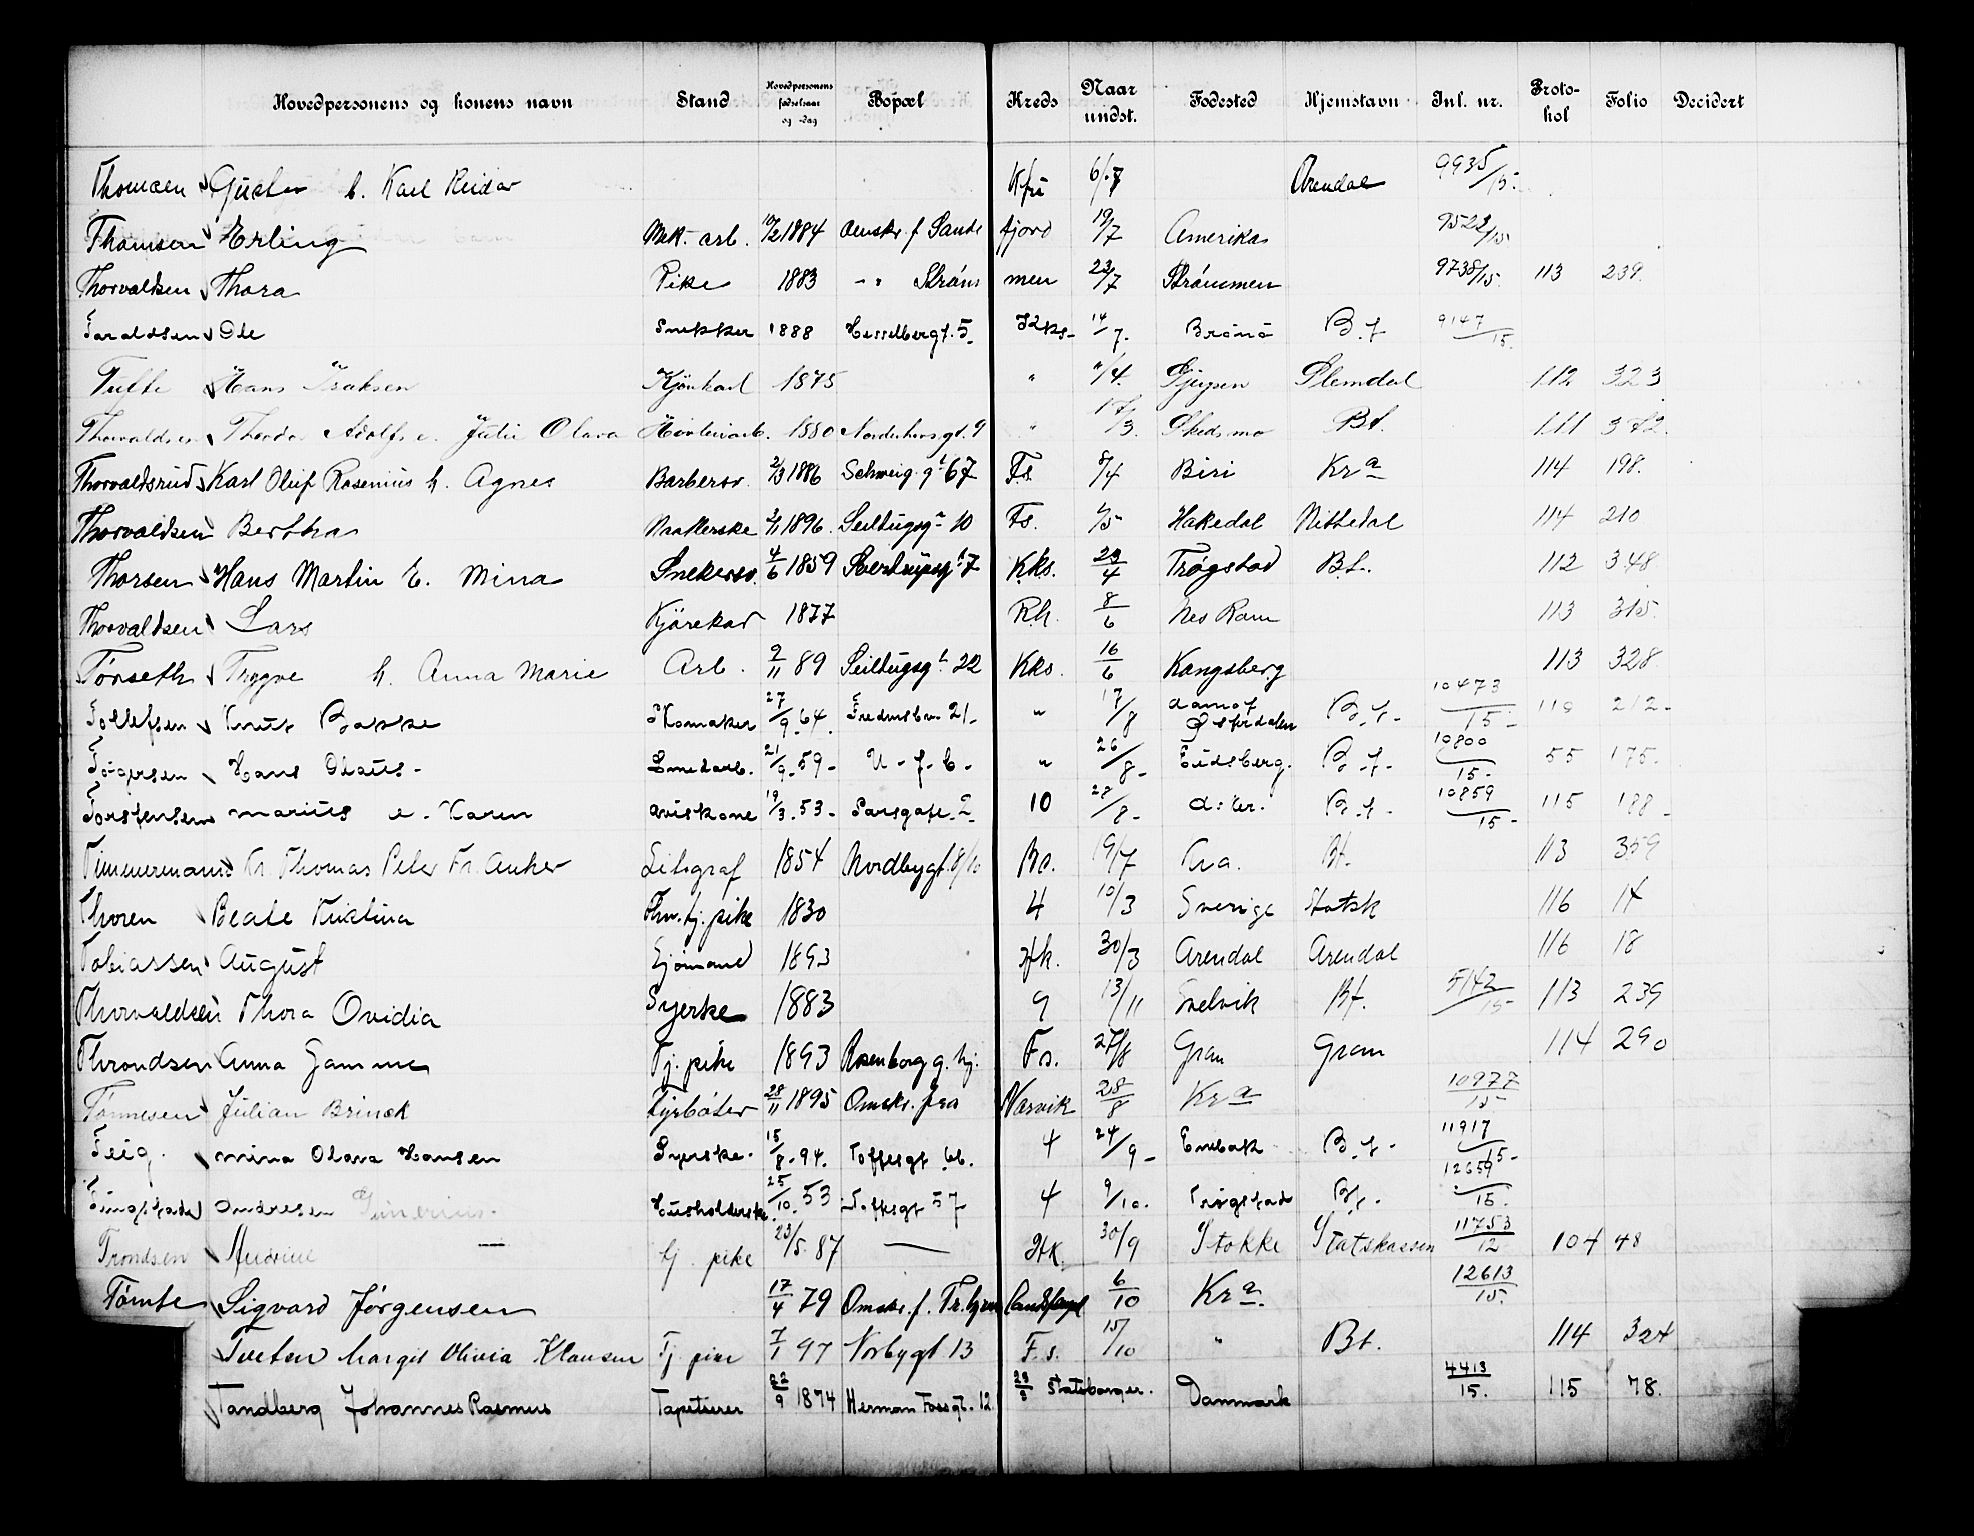 Hovedpersonens og konens navn Stand Hovedpersonens fødselsaar og -dag Bopæl Kreds Naar undst. Fødested Hjemstavn Inl. nr. Proto-kol Folio Decidert
Thomsen Gustav b. Karl Reidar 6/7 Arendal 9935/15.
Thomsen Erling Mek. arb. 10/2 1884 Oenskr. f. Sande fjord 19/7 Amerika 9522/15
Thorvaldsen Thora Pike 1883 - " Strøms men 23/7 Strømmen 9738/15. 113 239.
Taraldsen Ole Snekker 1888 Hesselbergt. 5 14/7. B.f 9147/15.
Tufte Hans Kjørekarl 1875 " Slemdal 112 323
Thorvaldsen 1880 Norderhovsgt. 9 " Skedsmo Bt. 111 372.
Thorvaldsrud Karl Oluf Rosenius h. Agnes Barbersv. 2/3 1886 Schweig. gt 67 Fs. 8/4 Biri Kra 114 198.
Thorvaldsen Berthe 2/11 1896. Seildugsgt 10 Fs. 6/5 Hakedal Nittedal 114 210
Thorsen Hans Martin E. Mina Snekersv. 4/6 1859 Sverdrupsgt 7 Kks. 29/4 Trøgstad B.t. 112 348
Thorvaldsen Lars Kjørekar 1877 Rh. 8/6 Nes Rom 113 315.
Tørseth Trygve h. Anna Marie Arb. 9/11 89 Seildugsgt. 22 Kks. 16/6 Kongsberg 113 328.
Tollefsen Knut Bakke Skomaker 27/9. 64. Fredensbv. 21. " 17/8 B.f. 10473/15 - 212 -
Torgersen Hans Olaus - Smedarb. 21/9 - 59 - U - f - b - " 26/8 - Eidsberg. B.f. 10800/15 - 55 175 -
Torstensen Marius e. Karen aviskone 19/3. 53 - Parsgate. 2 10 28/8 - B.f - 10859/15 - 115 188 -
Timmermand Kr. Thomas Peter Fr. Anker Litograf 1854 Nordbygt. 8/10 19/7 Kra. Bt. 113 359
Thoren Beate Kristina Thv. tj. pike 1830 4 10/3 Sverige Statsk 116 14
Tobiassen August Sjømand 1893 Hk. 30/3 Arendal Arendal 116 18
Thorvaldsen Thora Ovidia Syerske 1883 9 13/11 Svelvik Bt. 5142/15 113 239
Throndsen Anna Gamme Tj. pike 1893 Rosenborg g. hj. Fs. 27/8 Gran Gran 114 290
Tønnesen Julian Brinck Fyrbøter 28/11 1895 Omskr. fra Narvik 28/8 Kra 10977/15
Teig. Mina Olava Hansen Syerske. 15/8 - 94. Toftesgt 66. 4 24/9 - Enebak B.f - 11917/15 -
Andresen 25/10. 53 Toftesgt 57 4 9/10. Trøgstad Bf. 12659/15.
Trondsen Andrine — tj. pike 23/5. 87 — Hk 30/9 Stokke Statskassen 11753/12 104 48
Tømte Sigvard Jørgensen 17/4 79 Omskr. f. 6/10 Kra. 12613/15.
Tveten Margit Olivia Klausen Tj. pike 7/1 97 Norbygt 13 F.s. 15/10 " Bt. 114 324
Tandberg Johannes Rasmus Tapetserer 22/9 1874 Herman Fossgt. 12. 23/8 Statsborger. Danmark 4413/15. 115 78.